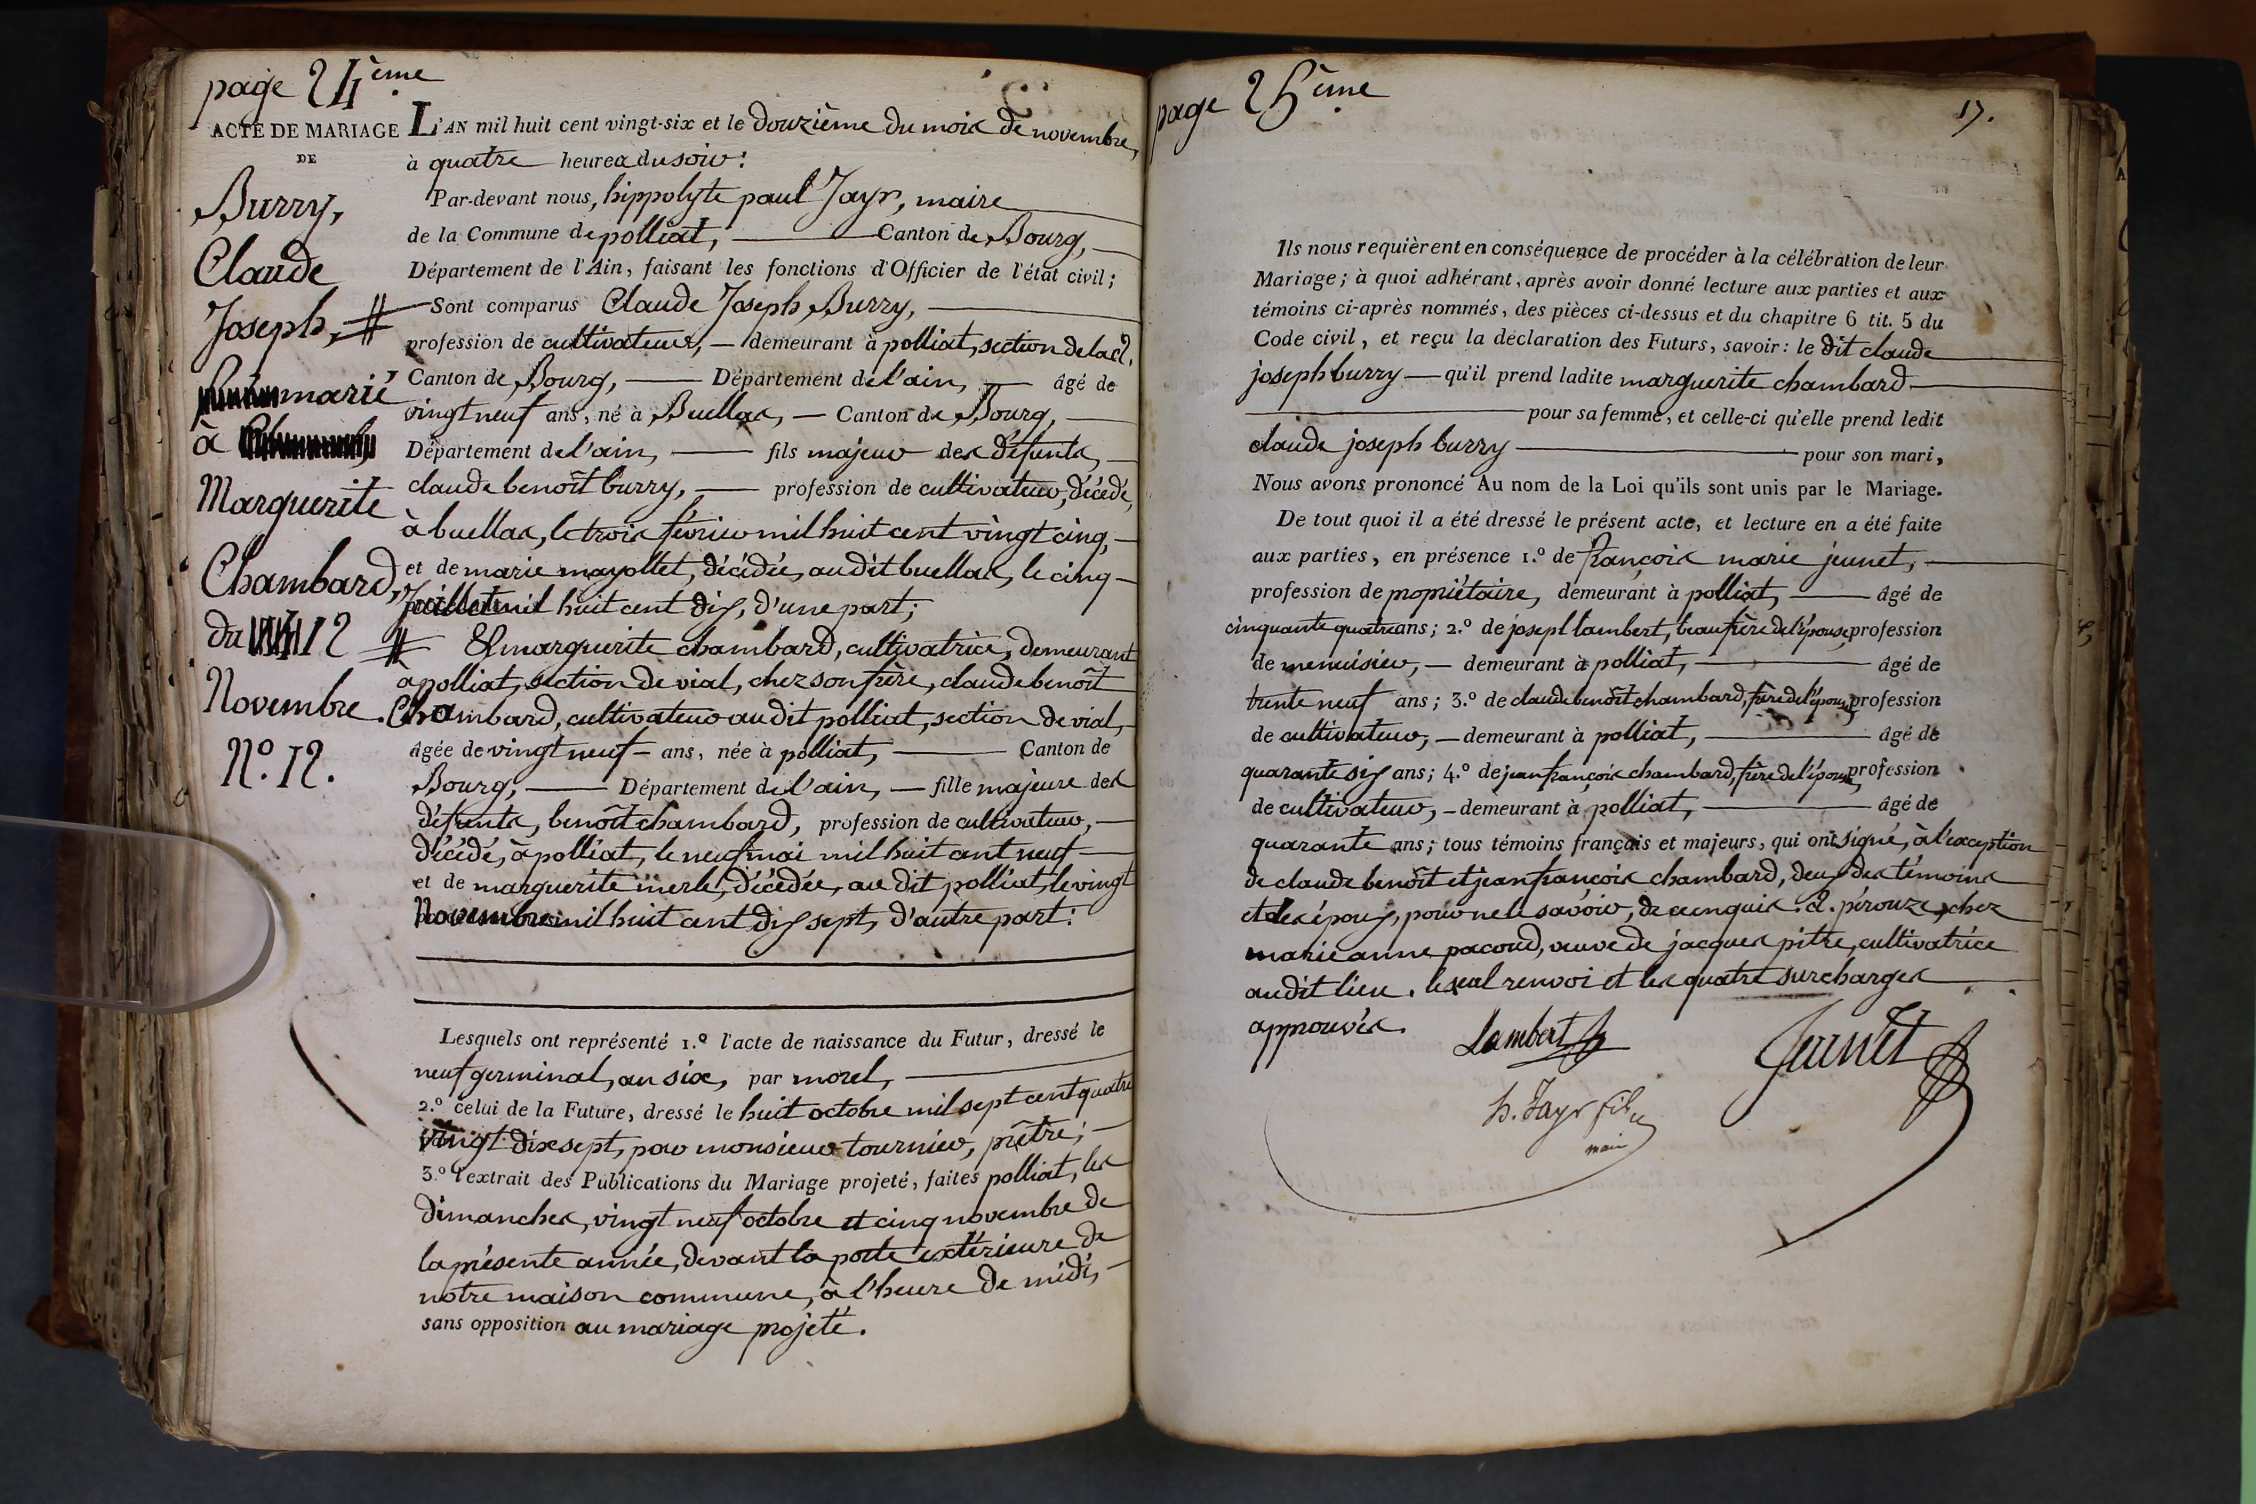 page 24ème
ACTE DE MARIAGE
DE
Burry,
Claude
Joseph, #
marié
à
Marguerite
Chambard,
du 12
Novembre.
N.º 12.
L'AN mil huit cent vingt-six et le douzième du mois de novembre,
à quatre heures du soir:
Par-devant nous, hippolyte paul Jayr, maire
de la Commune de polliat, Canton de Bourg,
Département de l'Ain, faisant les fonctions d'Officier de l'état civil;
Sont comparus Claude Joseph Burry,
profession de cultivateur, demeurant à polliat, section de la
Canton de Bourg, Département de l'ain, âgé de
vingt neuf ans, né à Buellas, Canton de Bourg,
Département de l'ain, fils majeur des défunts,
claude benoît burry, profession de cultivateur, décédé,
à buellas, le trois février mil huit cent vingt cinq,
et de marie mayollet, décédée, au dit buellas, le cinq
Juillet mil huit cent dix, d'une part;
# Et marguerite chambard, cultivatrice, demeurant
à polliat, section de vial, chez son frère, claude benoît
Chambard, cultivateur au dit polliat, section de vial,
âgée de vingt neuf ans, née à polliat, Canton de
Bourg, Département de l'ain, fille majeure des
défunts, benoît chambard, profession de cultivateur,
décédé, à polliat, le neuf mai mil huit cent neuf
et de marguerite merle, décédée, au dit polliat, le vingt
Novembre mil huit cent dix sept, d'autre part:
Lesquels ont représenté 1.º l'acte de naissance du Futur, dressé le
neuf germinal, an six, par morel,
2.º celui de la Future, dressé le huit octobre mil sept cent quatre
vingt dix sept, par monsieur tournier, prêtre;
3.º l'extrait des Publications du Mariage projeté, faites polliat, les
dimanches, vingt neuf octobre et cinq novembre de
la présente année, devant la porte extérieure de
notre maison commune, à l'heure de midi,
sans opposition au mariage projeté.
page 25ème
17.
Ils nous requièrent en conséquence de procéder à la célébration de leur
Mariage; à quoi adhérant, après avoir donné lecture aux parties et aux
témoins ci-après nommés, des pièces ci-dessus et du chapitre 6 tit. 5 du
Code civil, et reçu la déclaration des Futurs, savoir: le dit claude
joseph burry qu'il prend ladite marguerite chambard
pour sa femme, et celle-ci qu'elle prend ledit
claude joseph burry pour son mari,
Nous avons prononcé Au nom de la Loi qu'ils sont unis par le Mariage.
De tout quoi il a été dressé le présent acte, et lecture en a été faite
aux parties, en présence 1.º de françois marie jeunet,
profession de propriétaire, demeurant à polliat, âgé de
cinquante quatre ans; 2.º de joseph lambert, beaufrère de l'épouse, profession
de menuisier, demeurant à polliat, âgé de
trente neuf ans; 3.º de claude benoît chambard, frère de l'épouse, profession
de cultivateur, demeurant à polliat, âgé de
quarante six ans; 4.º de jean françois chambard, frère de l'épouse, profession
de cultivateur, demeurant à polliat, âgé de
quarante ans; tous témoins français et majeurs, qui ont signé, à l'exception
de claude benoît et jean françois chambard, deux des témoins
et des époux, pour ne le savoir, de ce enquis. 2. pérouze, chez
marie anne pacoud, veuve de jacques pitre, cultivatrice
au dit lieu. le seul renvoi et les quatre surcharges
approuvés.
Lambert
Jeunet
h. Jayr fils
maire